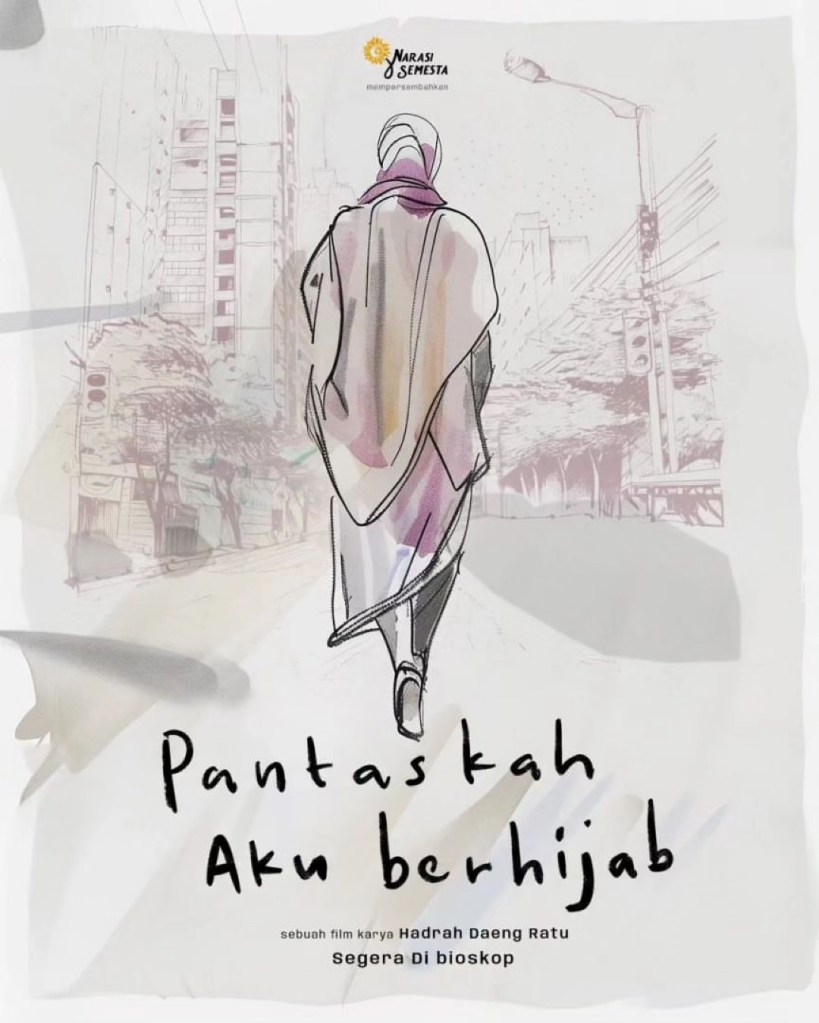 NARASI
SEMESTA
mempersembahkan
Pantaskah
Aku berhijab
sebuah film karya Hadrah Daeng Ratu
Segera Di bioskop